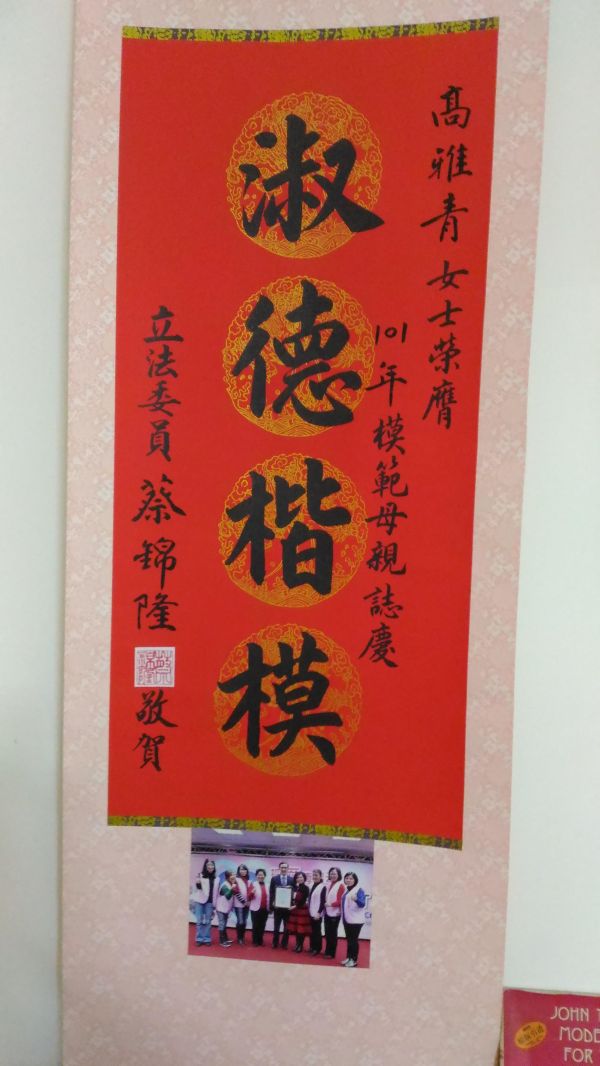 高雅青女士榮膺
101年模範母親誌慶
淑德楷模
立法委員 蔡錦隆 敬賀
蔡錦隆
JOHN
MODE
FOR